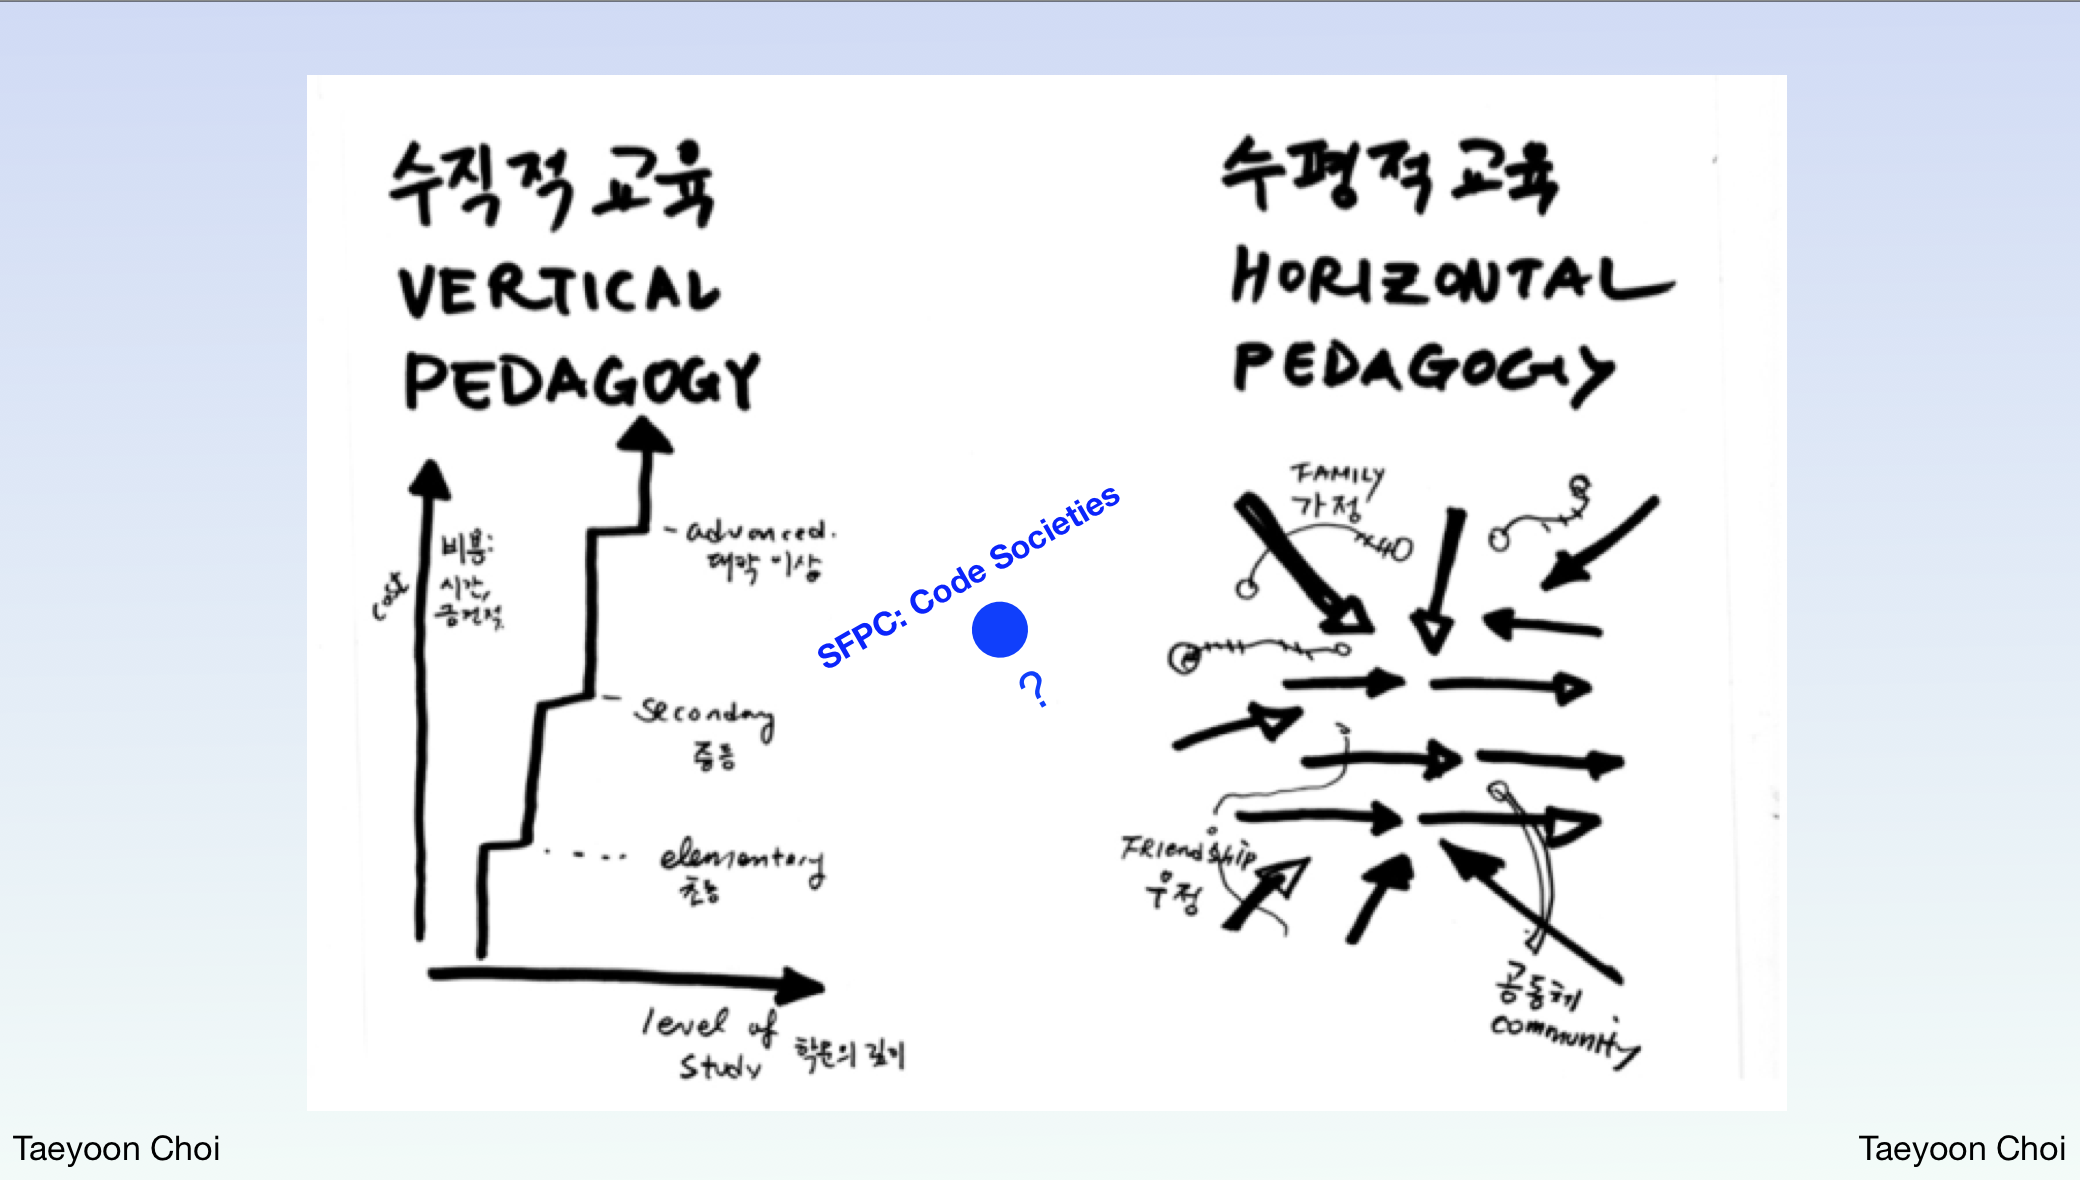 수직적 교육
VERTICAL
PEDAGOGY
cost
비용:
시간,
금전적
-advanced.
대학 이상
secondary
중등
elementary
초등
level of
study
학문의 깊이
SFPC: Code Societies
?
수평적 교육
HORIZONTAL
PEDAGOGY
FAMILY
가정
Friendship
우정
공동체
community
Taeyoon Choi
Taeyoon Choi